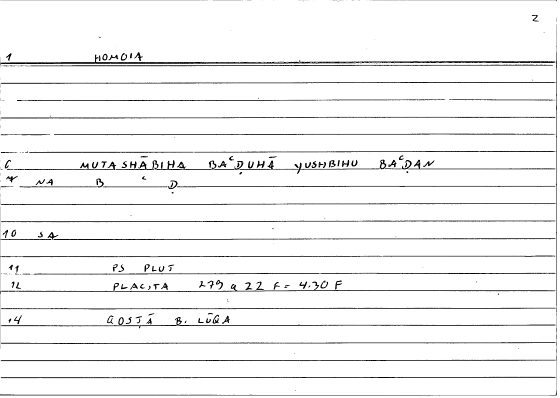 2
1 HOMOIA
6 MUTASHĀBIHA BAᶜḌUHĀ YUSHBIHU BAᶜḌAN
7 NA B ᶜ Ḍ
10 SA
11 PS PLUT
12 PLACITA 279 a 22 F = 4.30 F
14 QOSṬĀ B. LŪQA